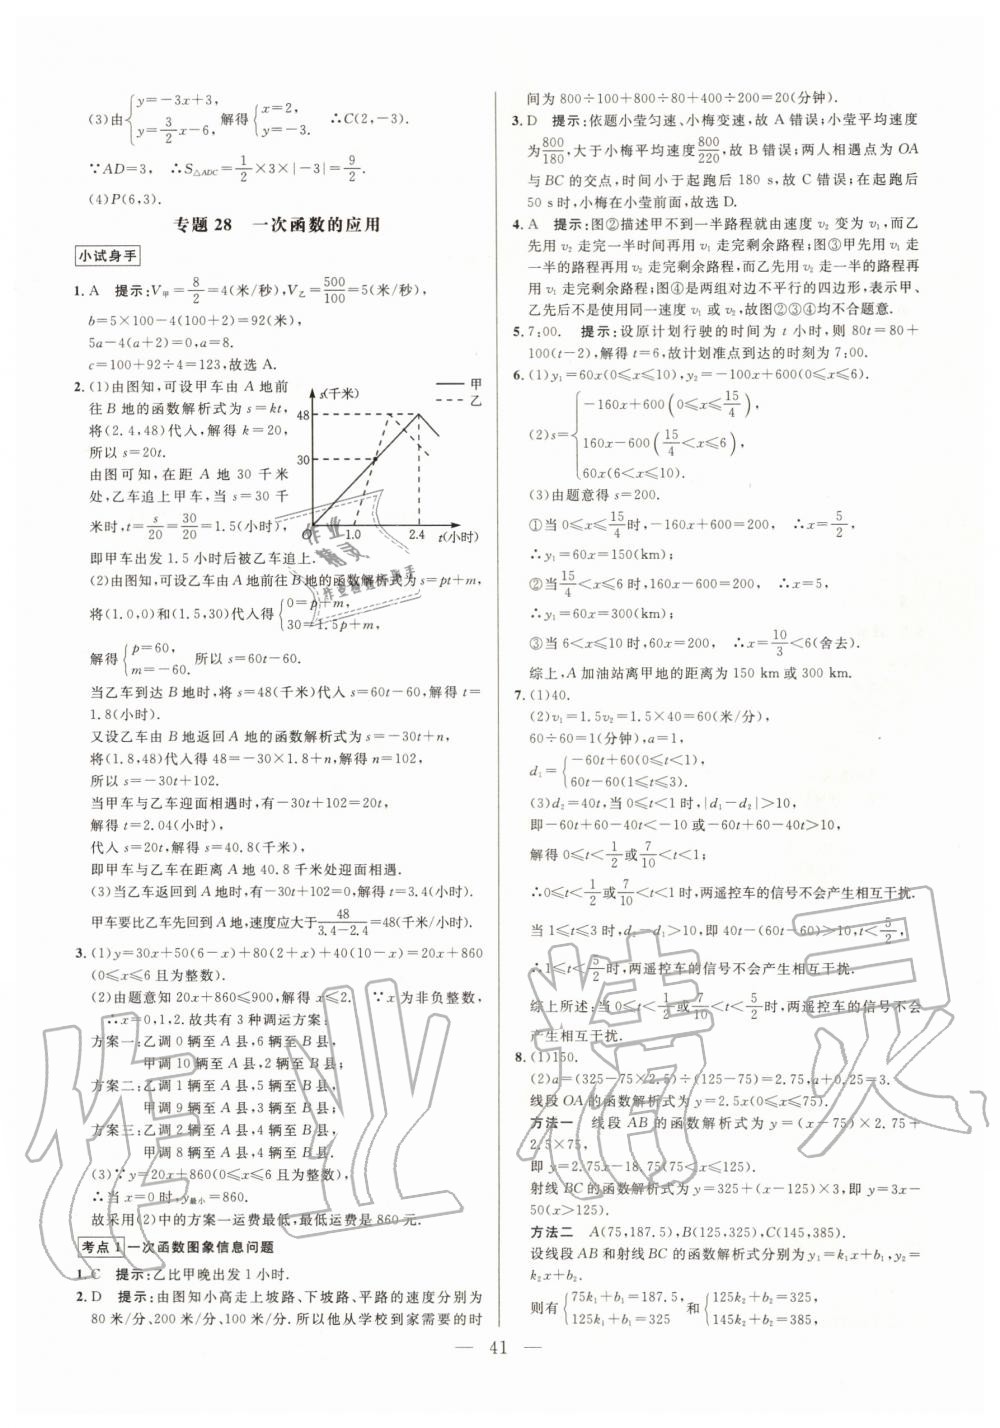 (3)由{y=-3x+3, y=3/2x-6, 解得{x=2, y=-3. ∴C(2,-3).
∵AD=3, ∴S△ADC=1/2×3×|-3|=9/2.
(4)P(6,3).
专题28 一次函数的应用
小试身手
1. A 提示:V甲=8/2=4(米/秒),V乙=500/100=5(米/秒),
b=5×100-4(100+2)=92(米),
5a-4(a+2)=0,a=8.
c=100+92÷4=123,故选A.
2. (1)由图知,可设甲车由A地前
往B地的函数解析式为s=kt,
将(2.4,48)代人,解得k=20,
所以s=20t.
由图可知,在距A地30千米
处,乙车追上甲车,当s=30千
米时,t=s/20=30/20=1.5(小时),
即甲车出发1.5小时后被乙车追上.
s(千米)
甲
乙
48
30
O
1.0
2.4
t(小时)
(2)由图知,可设乙车由A地前往B地的函数解析式为s=pt+m,
将(1.0,0)和(1.5,30)代人得{0=p+m, 30=1.5p+m,
解得{p=60, m=-60. 所以s=60t-60.
当乙车到达B地时,将s=48(千米)代人s=60t-60,解得t=
1.8(小时).
又设乙车由B地返回A地的函数解析式为s=-30t+n,
将(1.8,48)代人得48=-30×1.8+n,解得n=102,
所以s=-30t+102.
当甲车与乙车迎面相遇时,有-30t+102=20t,
解得t=2.04(小时).
代人s=20t,解得s=40.8(千米),
即甲车与乙车在距离A地40.8千米处迎面相遇.
(3)当乙车返回到A地时,有-30t+102=0,解得t=3.4(小时).
甲车要比乙车先回到A地,速度应大于48/(3.4-2.4)=48(千米/小时).
3. (1)y=30x+50(6-x)+80(2+x)+40(10-x)=20x+860
(0≤x≤6且为整数).
(2)由题意知20x+860≤900,解得x≤2. ∵x为非负整数,
∴x=0,1,2.故共有3种调运方案:
方案一:乙调0辆至A县,6辆至B县,
甲调10辆至A县,2辆至B县;
方案二:乙调1辆至A县,5辆至B县,
甲调9辆至A县,3辆至B县;
方案三:乙调2辆至A县,4辆至B县,
甲调8辆至A县,4辆至B县.
(3)∵y=20x+860(0≤x≤6且为整数).
∴当x=0时,y最小=860.
故采用(2)中的方案一运费最低,最低运费是860元.
考点1 一次函数图象信息问题
1. C 提示:乙比甲晚出发1小时.
2. D 提示:由图知小高走上坡路、下坡路、平路的速度分别为
80米/分、200米/分、100米/分.所以他从学校到家需要的时
间为800÷100+800÷80+400÷200=20(分钟).
3. D 提示:依题小莹匀速、小梅变速,故A错误;小莹平均速度
为800/180,大于小梅平均速度800/220,故B错误;两人相遇点为OA
与BC的交点,时间小于起跑后180 s,故C错误;在起跑后
50 s时,小梅在小莹前面,故选D.
4. A 提示:图②描述甲不到一半路程就由速度v₂变为v₁,而乙
先用v₂走完一半时间再用v₁走完剩余路程;图③甲先用v₁
走一半的路程再用v₂走完剩余路程,而乙先用v₂走完一半时
间再用v₁走完剩余路程;图④是两组对边不平行的四边形,表示甲、
乙先后不是使用同一速度v₁和v₂,故图②③④均不合题意.
5. 7:00. 提示:设原计划行驶的时间为t小时,则80t=80+
100(t-2),解得t=6,故计划准点到达的时刻为7:00.
6. (1)y₁=60x(0≤x≤10),y₂=-100x+600(0≤x≤6).
(2)s={-160x+600(0≤x≤15/4),
160x-600(15/4<x≤6),
60x(6<x≤10).
(3)由题意得s=200.
①当0≤x≤15/4时,-160x+600=200, ∴x=5/2,
∴y₁=60x=150(km);
②当15/4<x≤6时,160x-600=200, ∴x=5,
∴y₁=60x=300(km);
③当6<x≤10时,60x=200, ∴x=10/3<6(舍去).
综上,A加油站离甲地的距离为150 km或300 km.
7. (1)40.
(2)v₁=1.5v₂=1.5×40=60(米/分),
60÷60=1(分钟),a=1,
d₁={-60t+60(0≤t<1),
60t-60(1≤t≤3).
(3)d₂=40t,当0≤t<1时,|d₁-d₂|>10,
即-60t+60-40t<-10或-60t+60-40t>10,
解得0≤t<1/2或7/10<t<1;
∴0≤t<1/2或7/10<t<1时,两遥控车的信号不会产生相互干扰.
当1≤t≤3时,d₂-d₁>10,即40t-(60t-60)>10,t<5/2,
∴1≤t<5/2时,两遥控车的信号不会产生相互干扰.
综上所述:当0≤t<1/2或7/10<t<5/2时,两遥控车的信号不会
产生相互干扰.
8. (1)150.
(2)a=(325-75×2.5)÷(125-75)=2.75,a+0.25=3.
线段OA的函数解析式为y=2.5x(0≤x≤75).
方法一 线段AB的函数解析式为y=(x-75)×2.75+
2.5×75,
即y=2.75x-18.75(75<x≤125).
射线BC的函数解析式为y=325+(x-125)×3,即y=3x-
50(x>125).
方法二 A(75,187.5),B(125,325),C(145,385).
设线段AB和射线BC的函数解析式分别为y₁=k₁x+b₁,y₂=
k₂x+b₂,
则有{75k₁+b₁=187.5, 125k₁+b₁=325, 和{125k₂+b₂=325, 145k₂+b₂=385,
— 41 —
作业精灵
作业
精灵
作业检查小助手